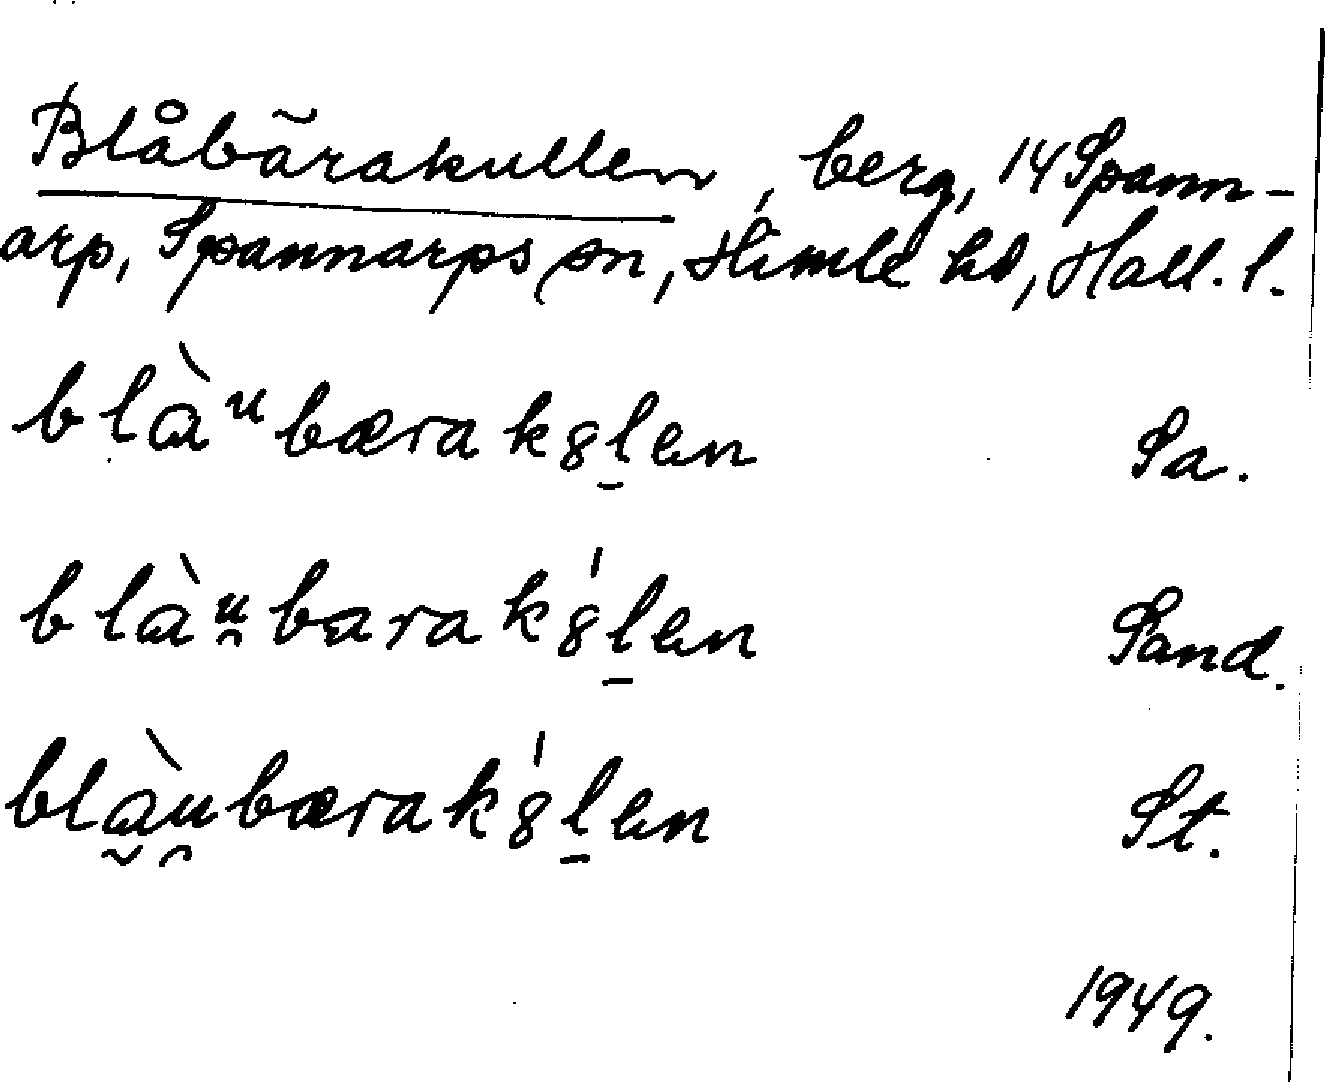 Blåbärakullen, berg, 14 Spann-
arp, Spannarps sn, Himle hd, Hall. l.
blɑ̀ᵘbærak8l̠en Sa.
blɑ̀ᵘ̯barak8̍l̠en Sand.
blɑ̀u̯bærak8̍l̠en St.
1949.